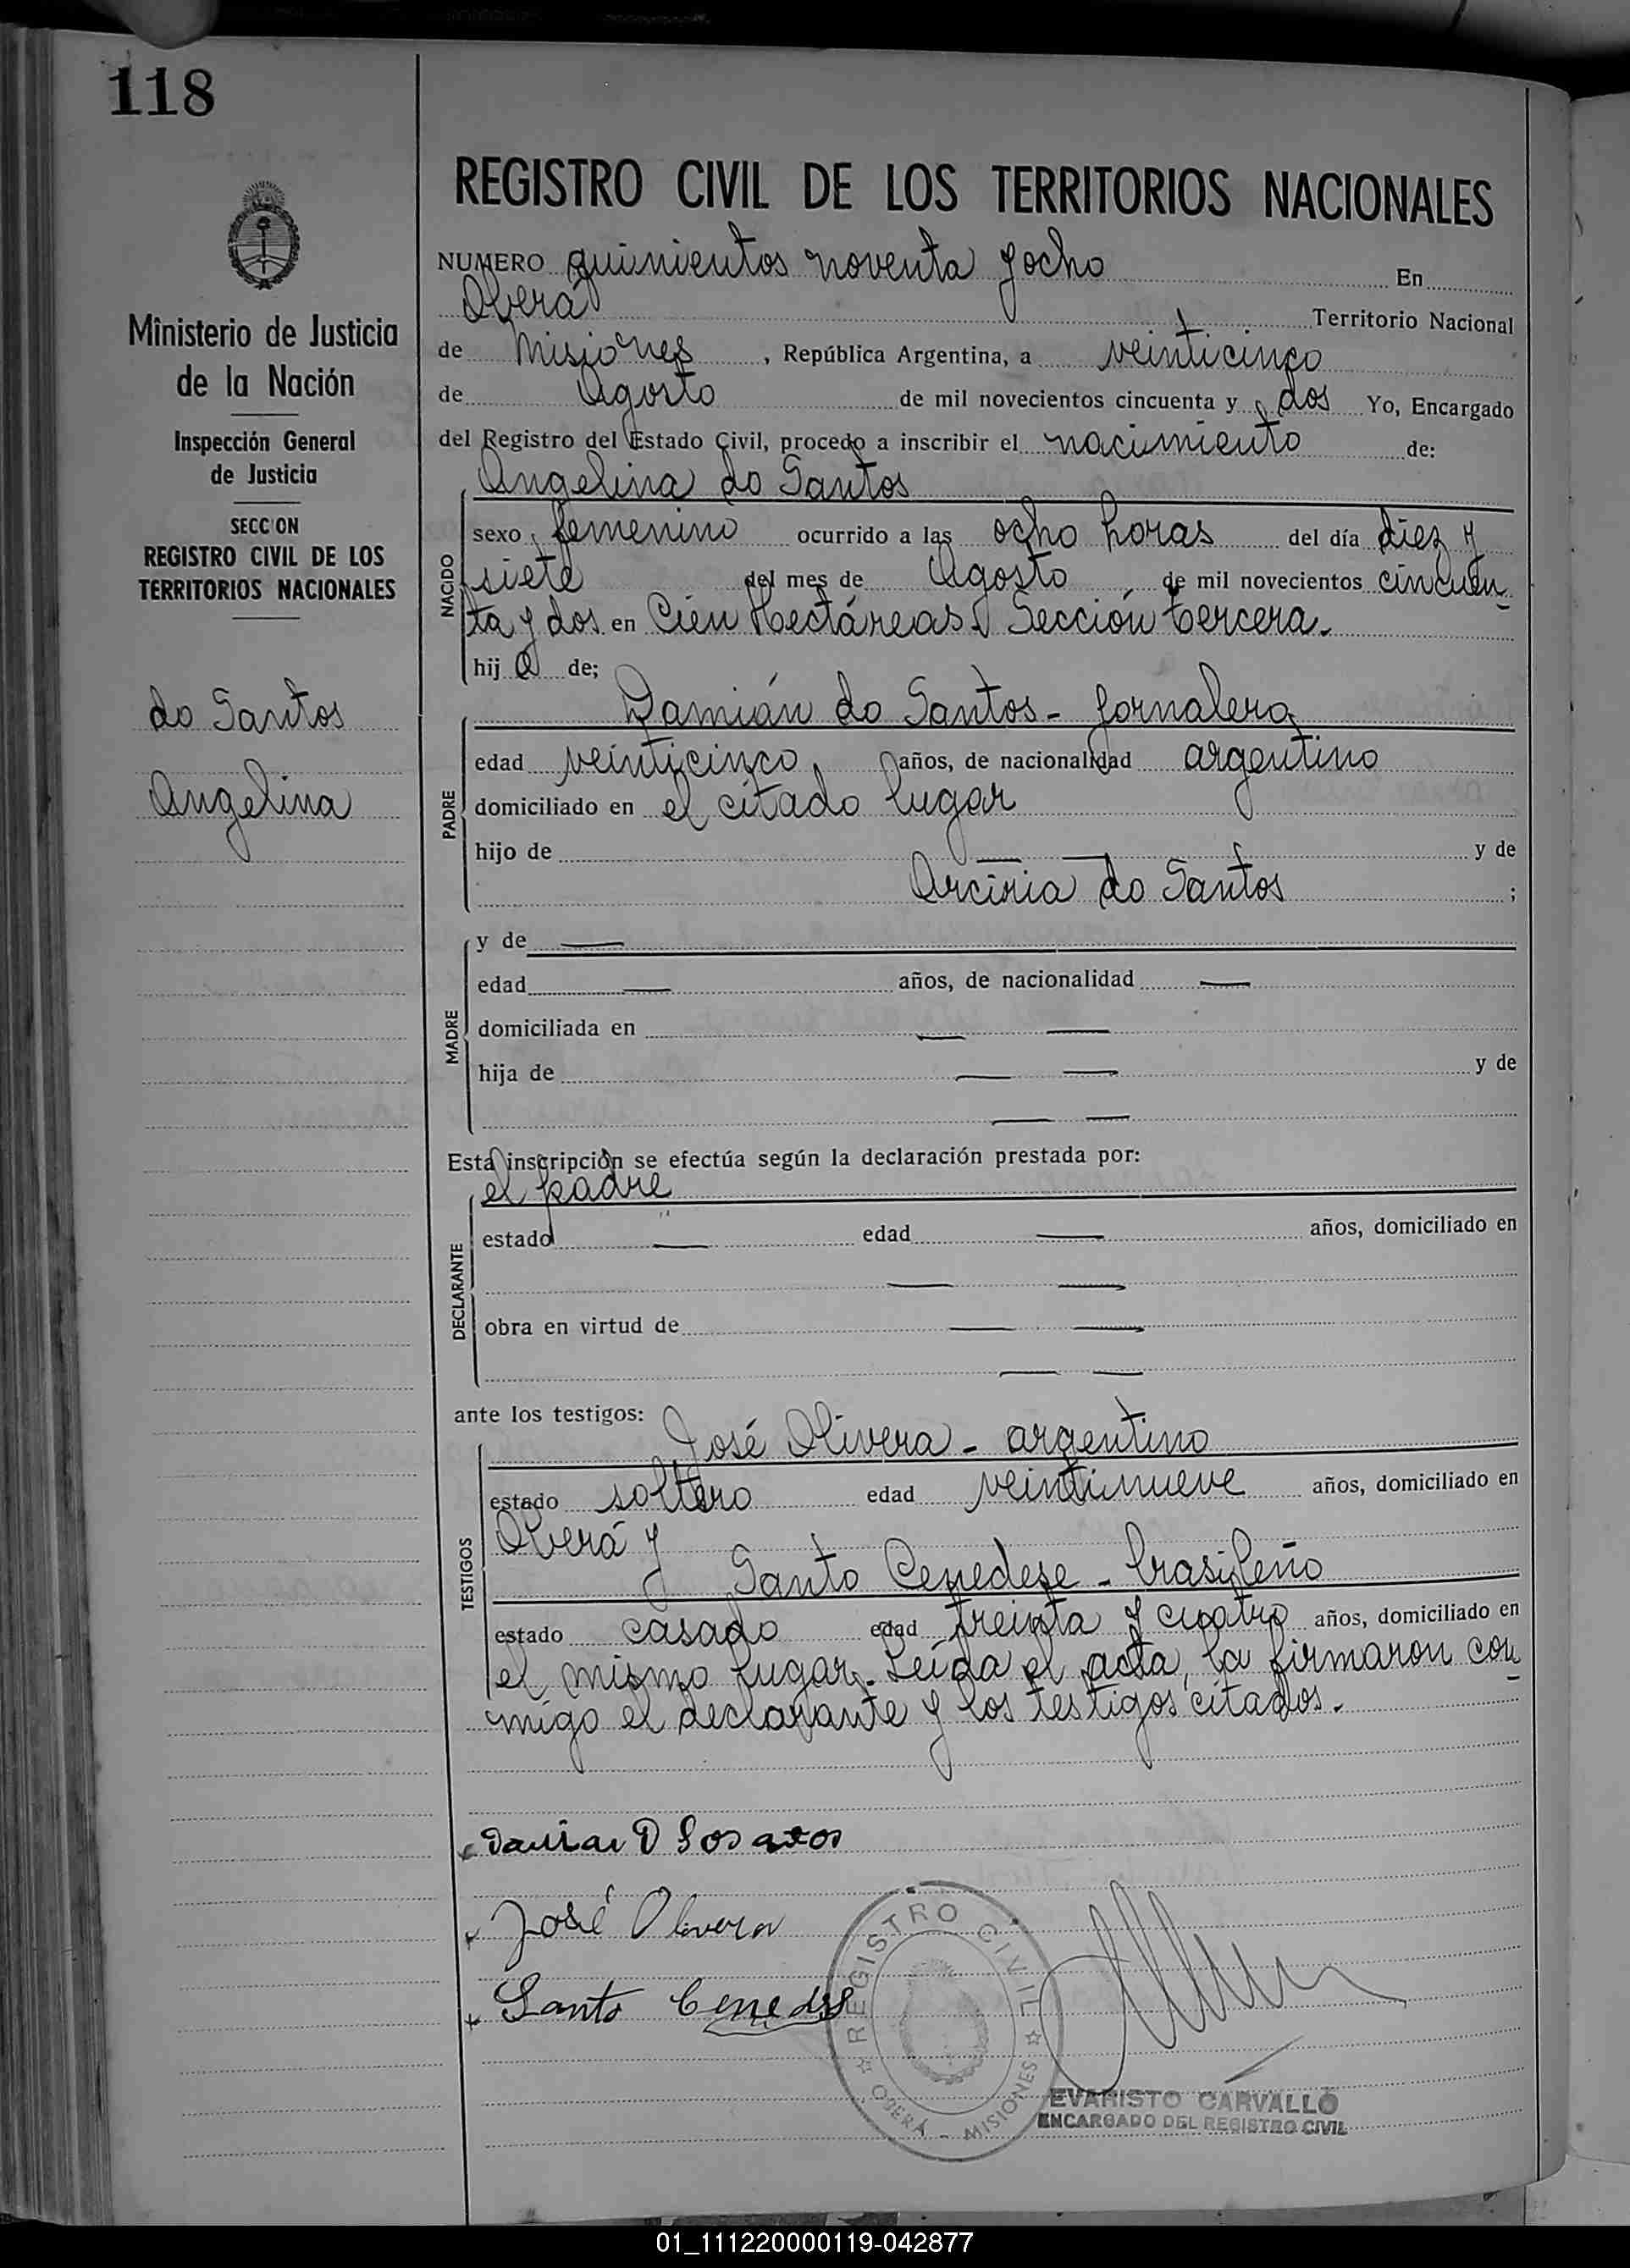 118
REGISTRO CIVIL DE LOS TERRITORIOS NACIONALES
Ministerio de Justicia
de la Nación
Inspección General
de Justicia
SECCION
REGISTRO CIVIL DE LOS
TERRITORIOS NACIONALES
do Santos
Angelina
NUMERO quinientos noventa y ocho En
Oberá Territorio Nacional
de Misiones, República Argentina, a veinticinco
de Agosto de mil novecientos cincuenta y dos Yo, Encargado
del Registro del Estado Civil, procedo a inscribir el nacimiento de:
Angelina do Santos
NACIDO
sexo femenino ocurrido a las ocho horas del día diez y
siete del mes de Agosto de mil novecientos cincuen-
ta y dos en Cien Hectáreas. Sección tercera.
hija de;
Damián do Santos - Jornalero
PADRE
edad veinticinco, años, de nacionalidad argentino
domiciliado en el citado lugar
hijo de — — y de
Arciria do Santos ;
MADRE
y de —
edad — años, de nacionalidad —
domiciliada en — —
hija de — — y de
— —
Esta inscripción se efectúa según la declaración prestada por:
el padre
DECLARANTE
estado — edad — años, domiciliado en
— —
obra en virtud de — —
— —
ante los testigos:
José Olivera - argentino
TESTIGOS
estado soltero edad veintinueve años, domiciliado en
Oberá y
Santo Cenedese - brasileño
estado casado edad treinta y cuatro años, domiciliado en
el mismo lugar. Leída el acta, la firmaron con-
migo el declarante y los testigos citados.
José Olivera
Santo Cenedese
REGISTRO CIVIL
OBERÁ - MISIONES
EVARISTO CARVALLO
ENCARGADO DEL REGISTRO CIVIL
01_111220000119-042877